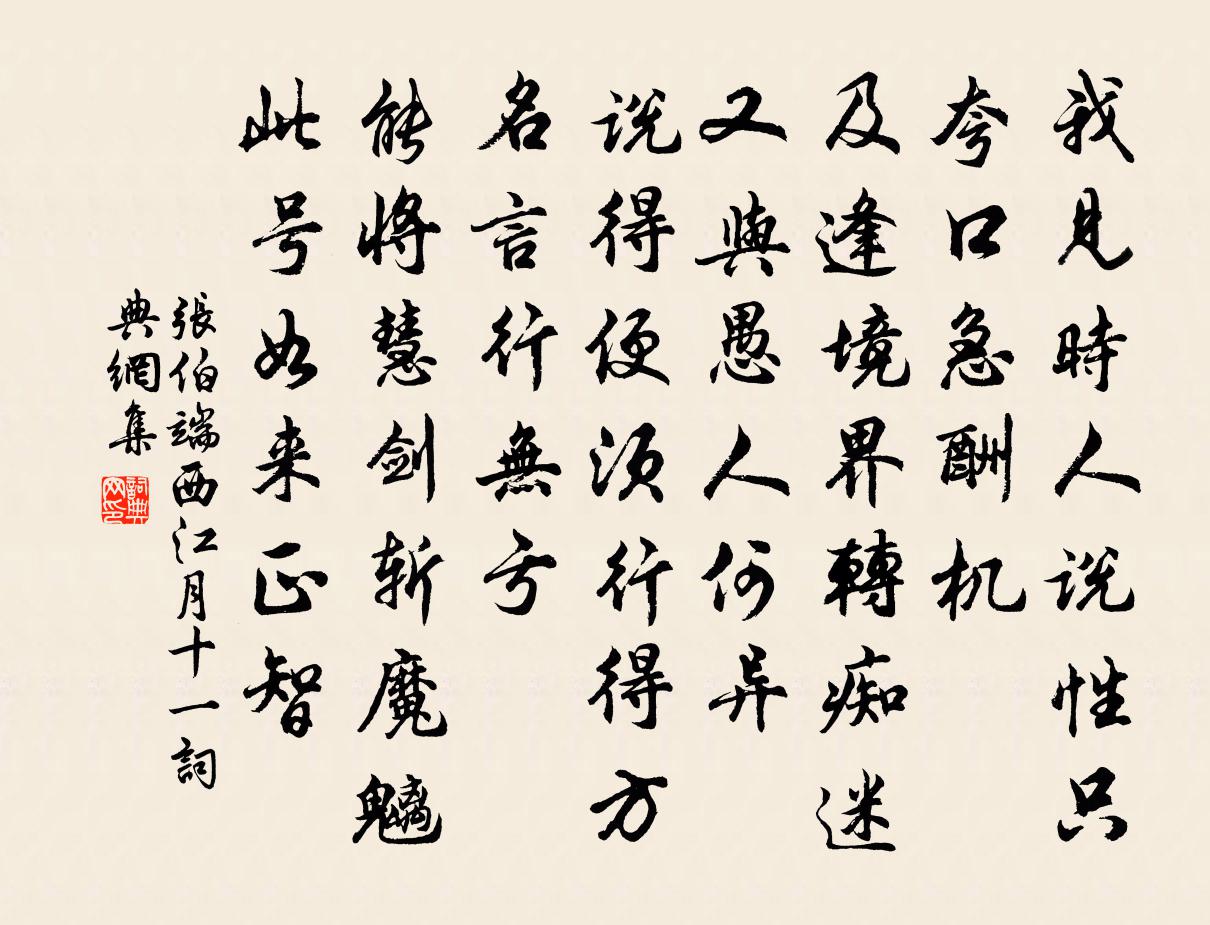 我見時人說性只
夸口急酬机
及逢境界轉痴迷
又與愚人何异
說得便須行得方
名言行無亏
能將慧剑斩魔魑
此号如来正智
張伯端西江月十一詞
典網集
詞典网印